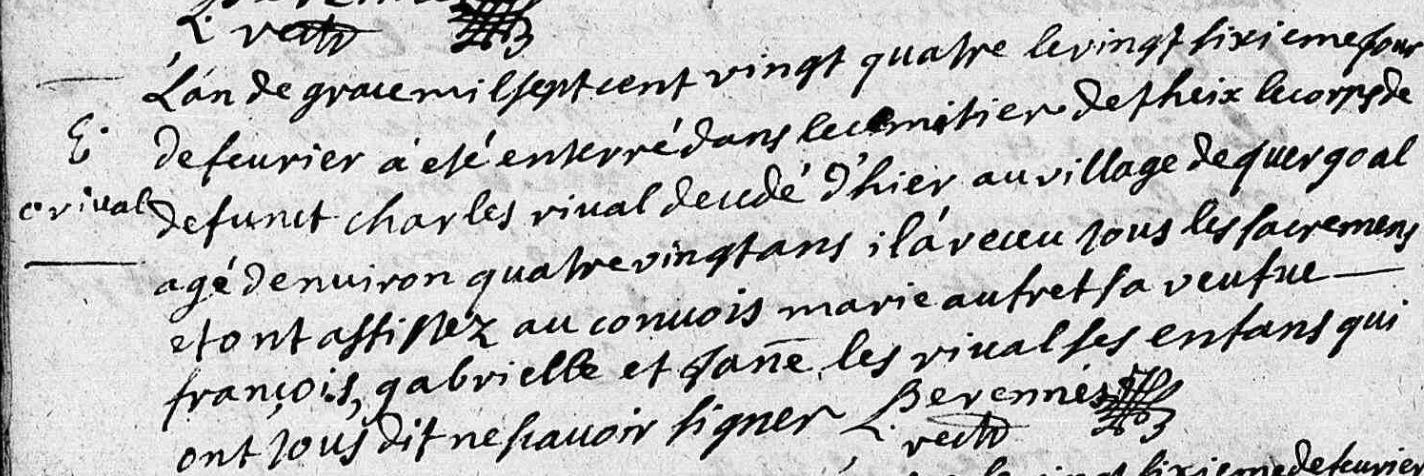 L. rectr
L'an de grace mil sept cent vingt quatre le vingt sixieme jour
E.
de feurier a eté enterré dans le cemitier de theix le corps de
c rival
defunct charles rival decedé d'hier au village de quergoal
agé denuiron quatre vingt ans il a receu tous les sacremens
et ont assistez au conuois marie autret sa veufue
françois, gabrielle et janne les rival ses enfans qui
ont tous dit ne scauoir signer L. Berennes
rectr
vingt sixieme de feurier